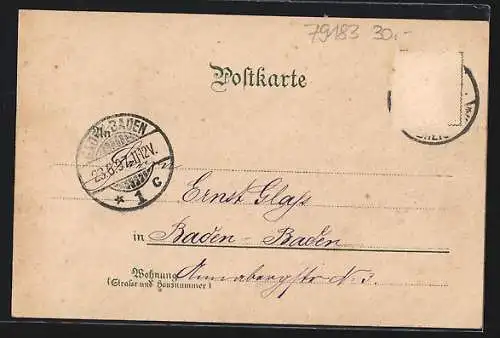 79183 30.-
Postkarte
BADEN-BADEN
An
23.8.97. 11-12V.
* 1 c
Ernst Glaß
in Baden-Baden
Wohnung
(Straße und Hausnummer)